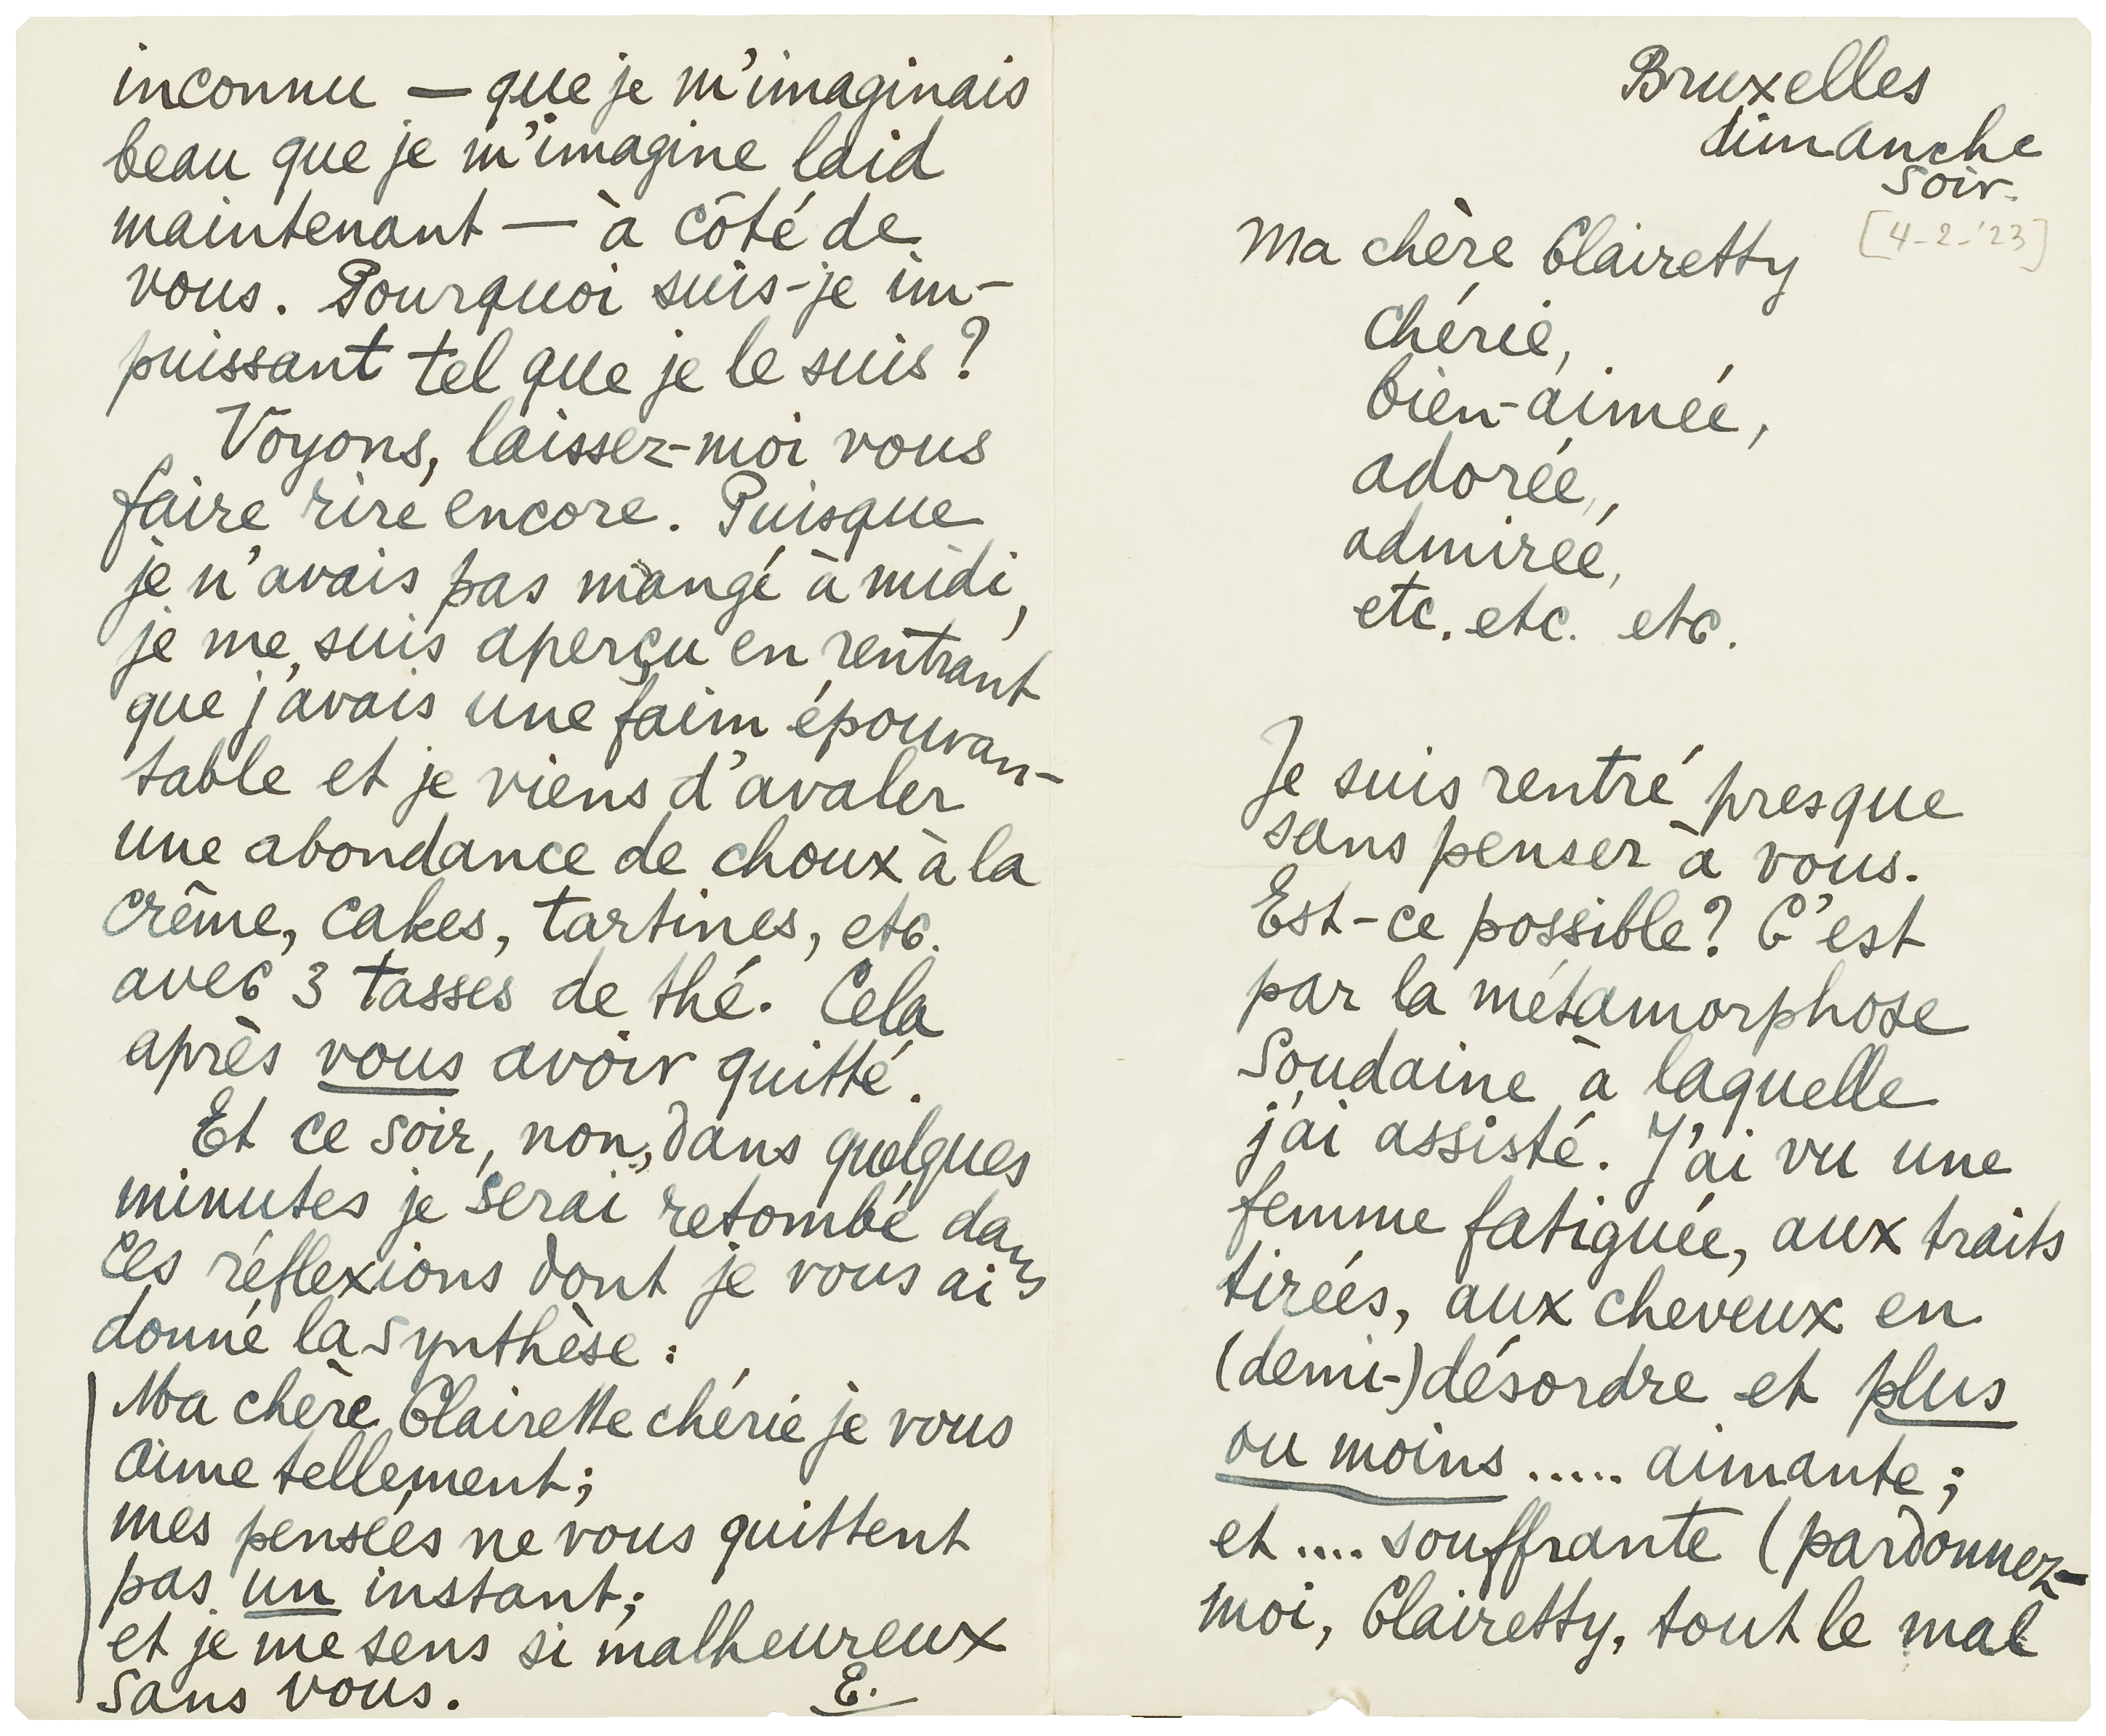 Bruxelles
dimanche
soir.
[4-2-'23]
Ma chère Clairetty
chérie,
bien-aimée,
adorée,
admirée,
etc. etc. etc.
Je suis rentré presque
sans penser à vous.
Est-ce possible? C'est
par la métamorphose
soudaine à laquelle
j'ai assisté. J'ai vu une
femme fatiguée, aux traits
tirés, aux cheveux en
(demi-)désordre et plus
ou moins ..... aimante;
et .... souffrante (pardonnez-
moi, Clairetty, tout le mal
inconnu — que je m'imaginais
beau que je m'imagine laid
maintenant — à côté de
vous. Pourquoi suis-je im-
puissant tel que je le suis?
Voyons, laissez-moi vous
faire rire encore. Puisque
je n'avais pas mangé à midi,
je me suis aperçu en rentrant
que j'avais une faim épouvan-
table et je viens d'avaler
une abondance de choux à la
crême, cakes, tartines, etc.
avec 3 tasses de thé. Cela
après vous avoir quitté.
Et ce soir, non, dans quelques
minutes je serai retombé dans
ces réflexions dont je vous ai
donné la synthèse:
Ma chère Clairette chérie je vous
aime tellement;
mes pensées ne vous quittent
pas un instant;
et je me sens si malheureux
sans vous.
E.